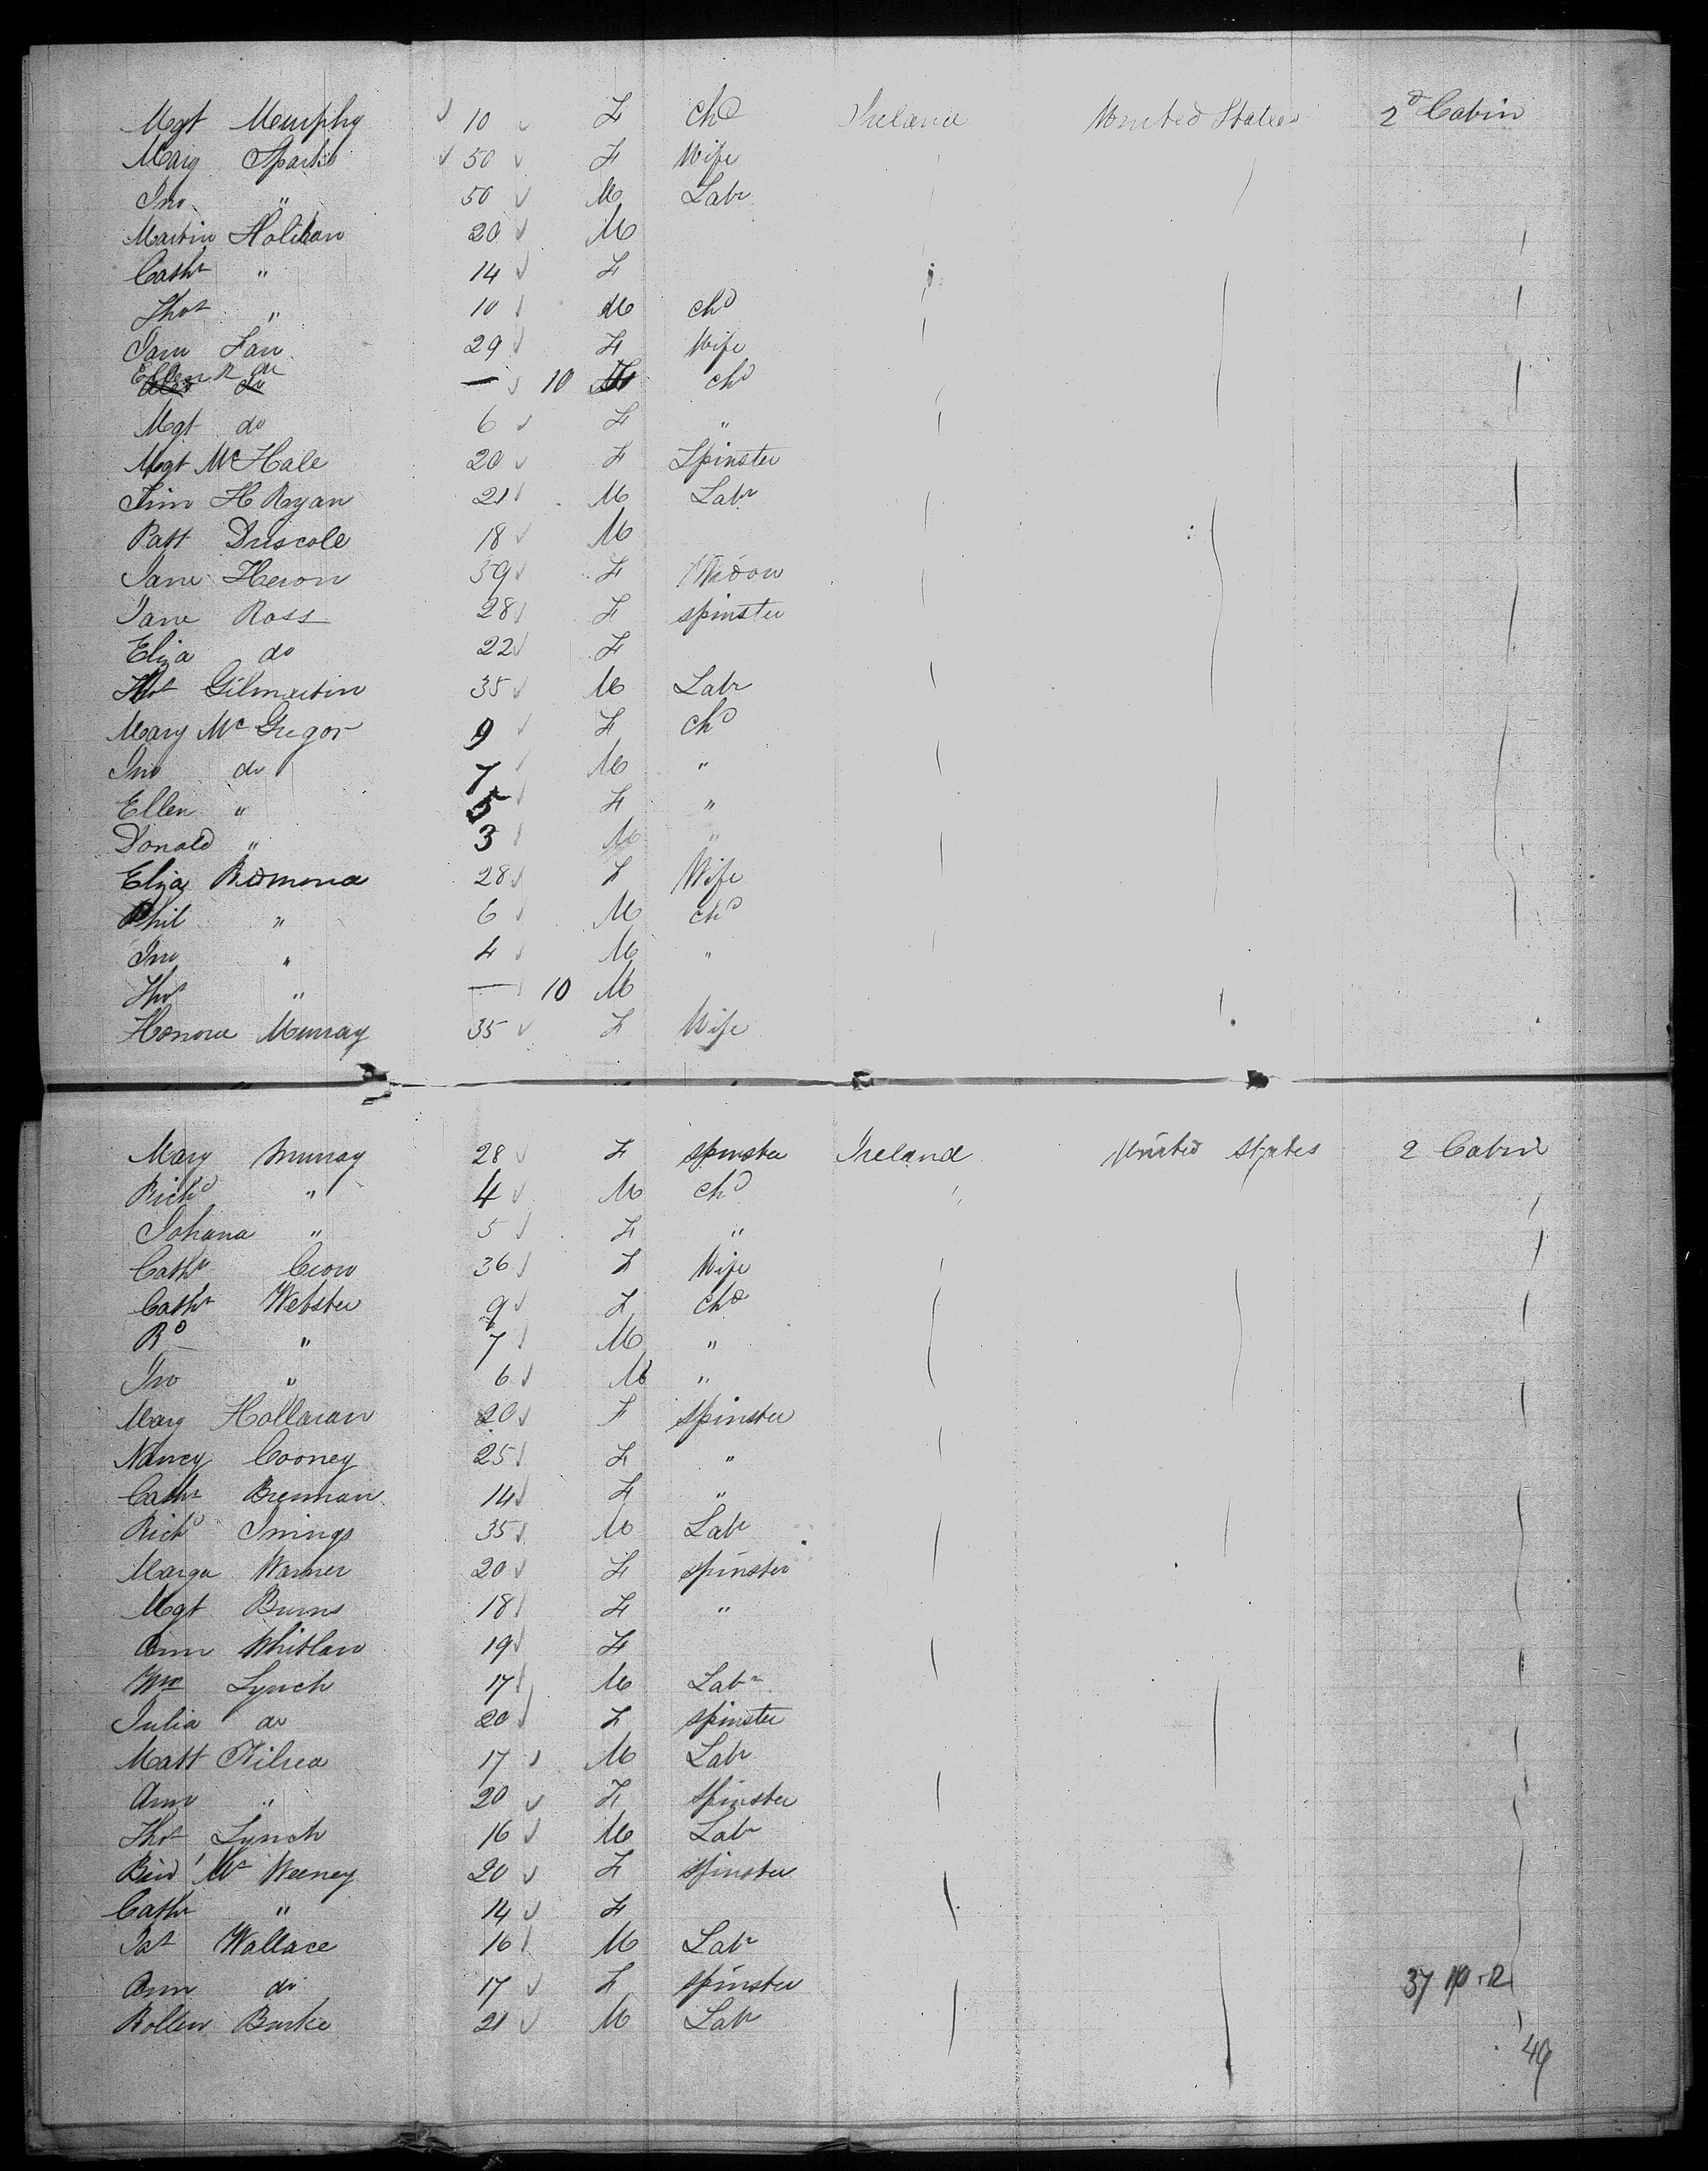 Mgt Murphy 10 F chd Ireland United States 2d Cabin
Mary 50 F Wife
Jno " 50 M Labr
Martin Holihan 20 M
Cathr " 14 F
Thos " 10 M chd
29 F Wife
Ellen do — 10 F chd
Mgt do 6 F "
Mgt McHale 20 F Spinster
Jim H Ryan 21 M Labr
Patt Driscole 18 M
Jane Heron 39 F Widow
Jane Ross 28 F spinster
Eliza do 22 F
Thos Gilmartin 35 M Labr
Mary McGregor 9 F chd
Jno do 7 M "
Ellen " 5 F "
Donald " 3 M "
Eliza Redmond 28 F Wife
Phil " 6 M chd
Jno " 4 M "
Thos " — 10 M
Honora Murray 35 F Wife
Mary Murray 28 F spinster Ireland United States 2 Cabin
Richd " 4 M chd
Johana " 5 F "
Cathr Crow 36 F Wife
Cathr Webster 9 F chd
Rd " 7 M "
Jno " 6 M "
Mary Hollaran 20 F spinster
Nancy Cooney 25 F "
Cathr Brennan 14 F "
Richd 35 M Labr
Warner 20 F spinster
Mgt Burns 18 F "
Ann Whitlaw 19 F
Wm Lynch 17 M Labr
Julia do 20 F spinster
Matt Kilrea 17 M Labr
Ann " 20 F spinster
Thos Lynch 16 M Labr
Bid Mc Weeney 20 F spinster
Cathr " 14 F
Pat Wallace 16 M Labr
Ann do 17 F spinster 37
Burke 21 M Labr
49